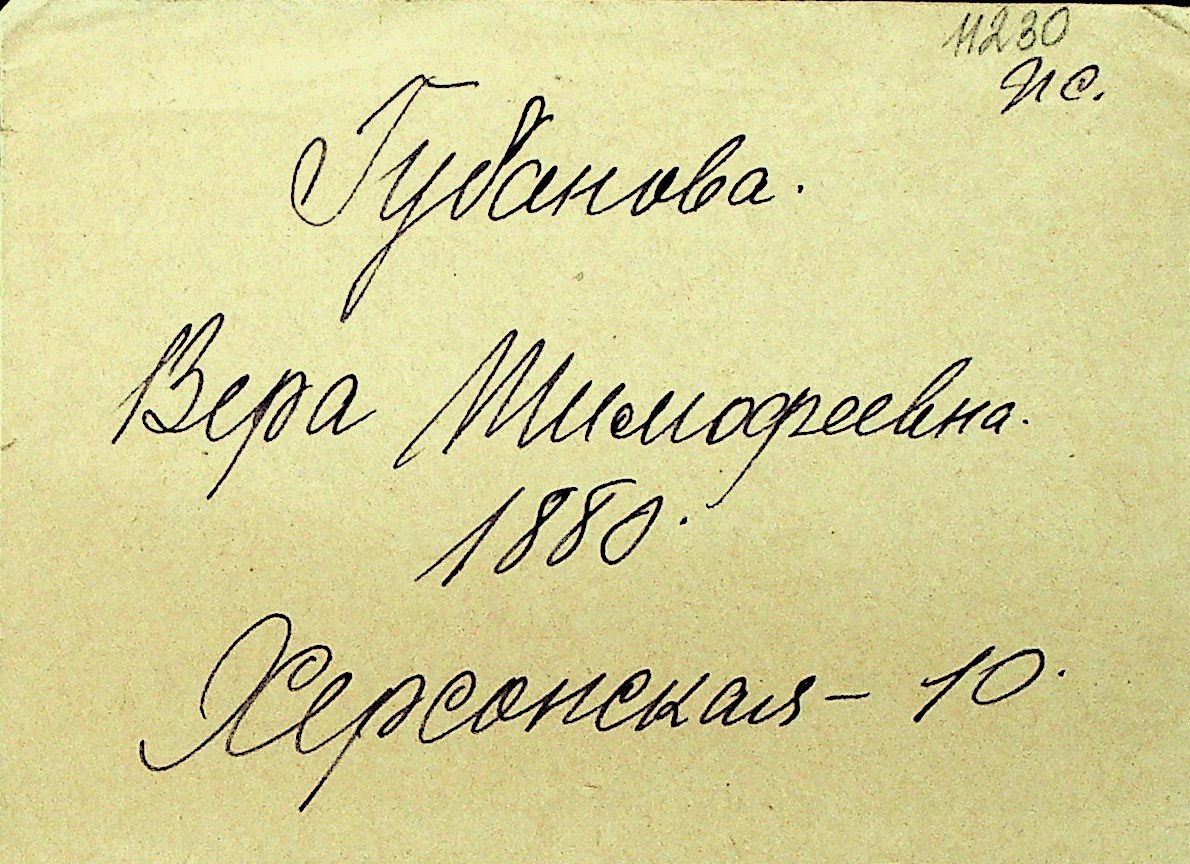 11230
Пс.
Губанова.
Вера Тимофеевна.
1880.
Херсонская - 10.